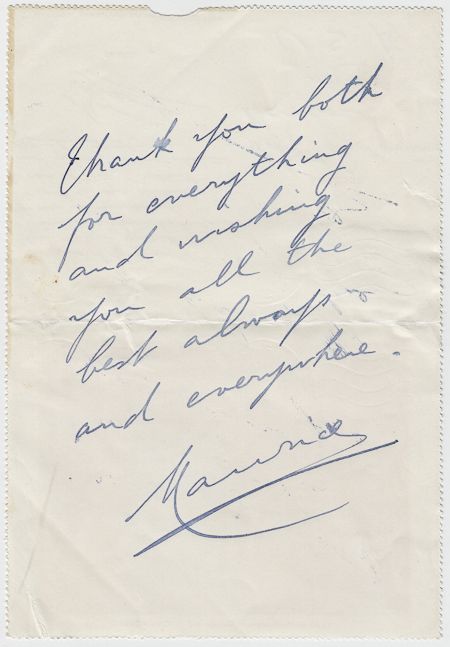 Thank you both
for everything
and wishing
you all the
best always
and everywhere.
Maurice